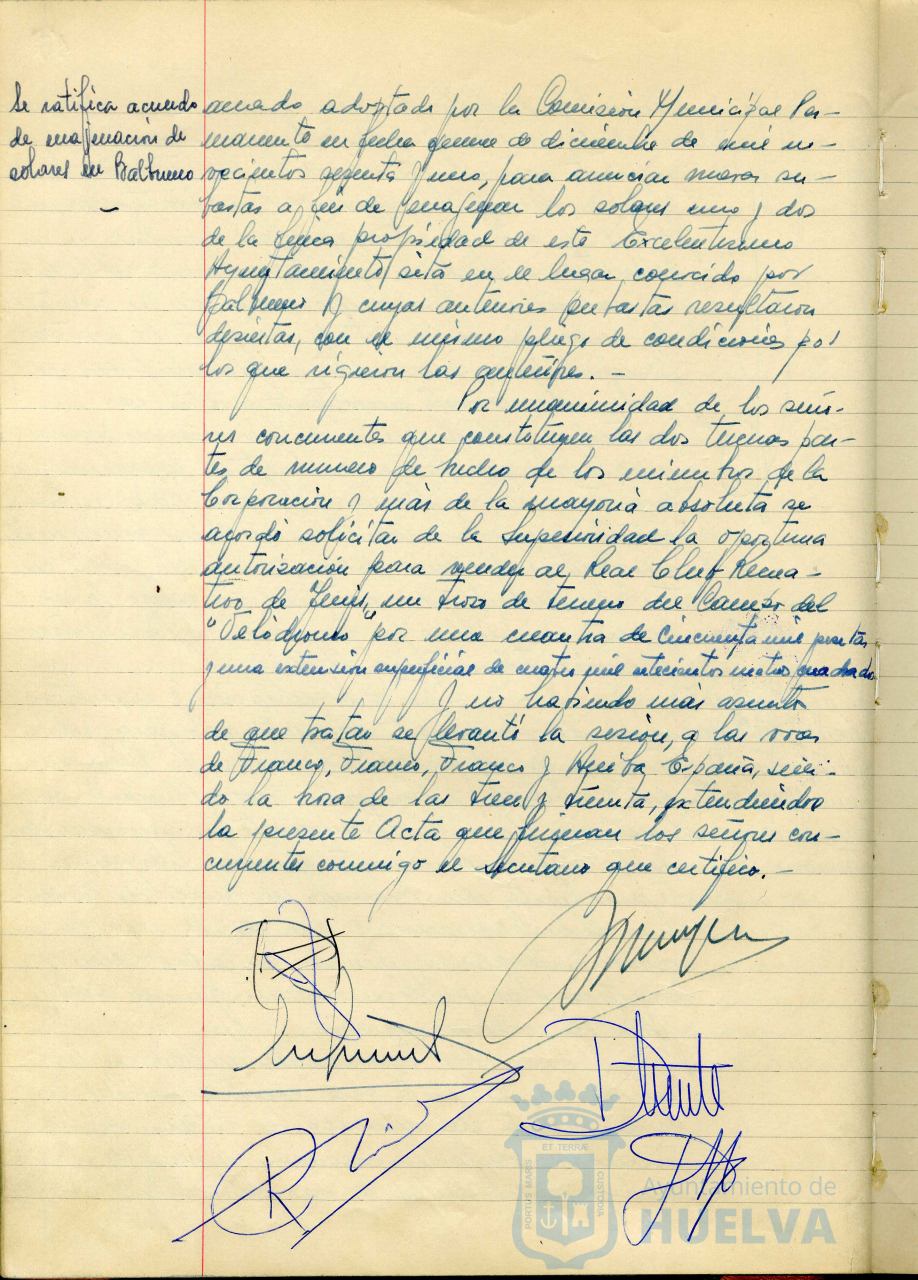 Se ratifica acuerdo
de enajenación de
solares en Balbueno
acuerdo adoptado por la Comisión Municipal Per-
manente en fecha quince de diciembre de mil no-
vecientos sesenta y uno, para anunciar nuevas su-
bastas a fin de enajenar los solares uno y dos
de la finca propiedad de este Excelentísimo
Ayuntamiento sita en el lugar conocido por
Balbueno y cuyas anteriores subastas resultaron
desiertas, con el mismo pliego de condiciones por
los que rigieron las anteriores. -
Por unanimidad de los seño-
res concurrentes que constituyen las dos terceras par-
tes de número de hecho de los miembros de la
Corporación y más de la mayoría absoluta se
acordó solicitar de la Superioridad la oportuna
autorización para vender al Real Club Recrea-
tivo de Tenis, un trozo de terreno del Campo del
"Velódromo" por una cuantía de cincuenta mil pesetas
y una extensión superficial de cuatro mil setecientos metros cuadrados
Y no habiendo más asuntos
de que tratar se levantó la sesión, a las voces
de Franco, Franco, Franco y Arriba España, sien-
do la hora de las trece y treinta, extendiéndose
la presente Acta que firman los señores con-
currentes conmigo el secretario que certifico. -
ET TERRAE
PORTUS MARIS
CUSTODIA
Ayuntamiento de
HUELVA